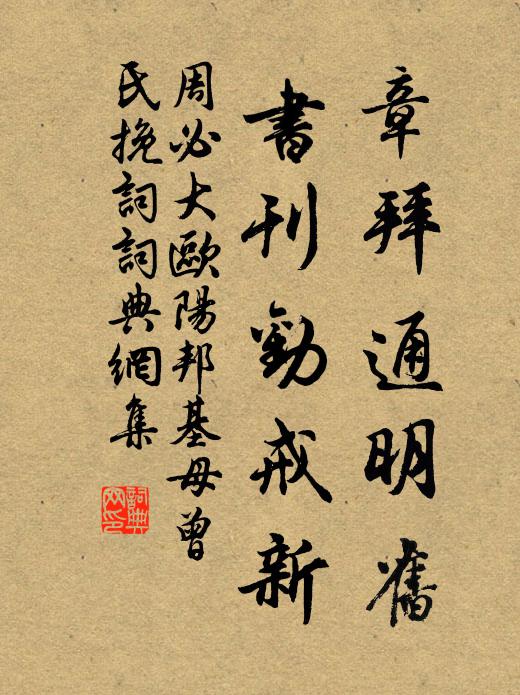 章拜通明舊
書刊勸戒新
周必大歐陽邦基母曾
氏挽詞詞典網集
詞典
网印